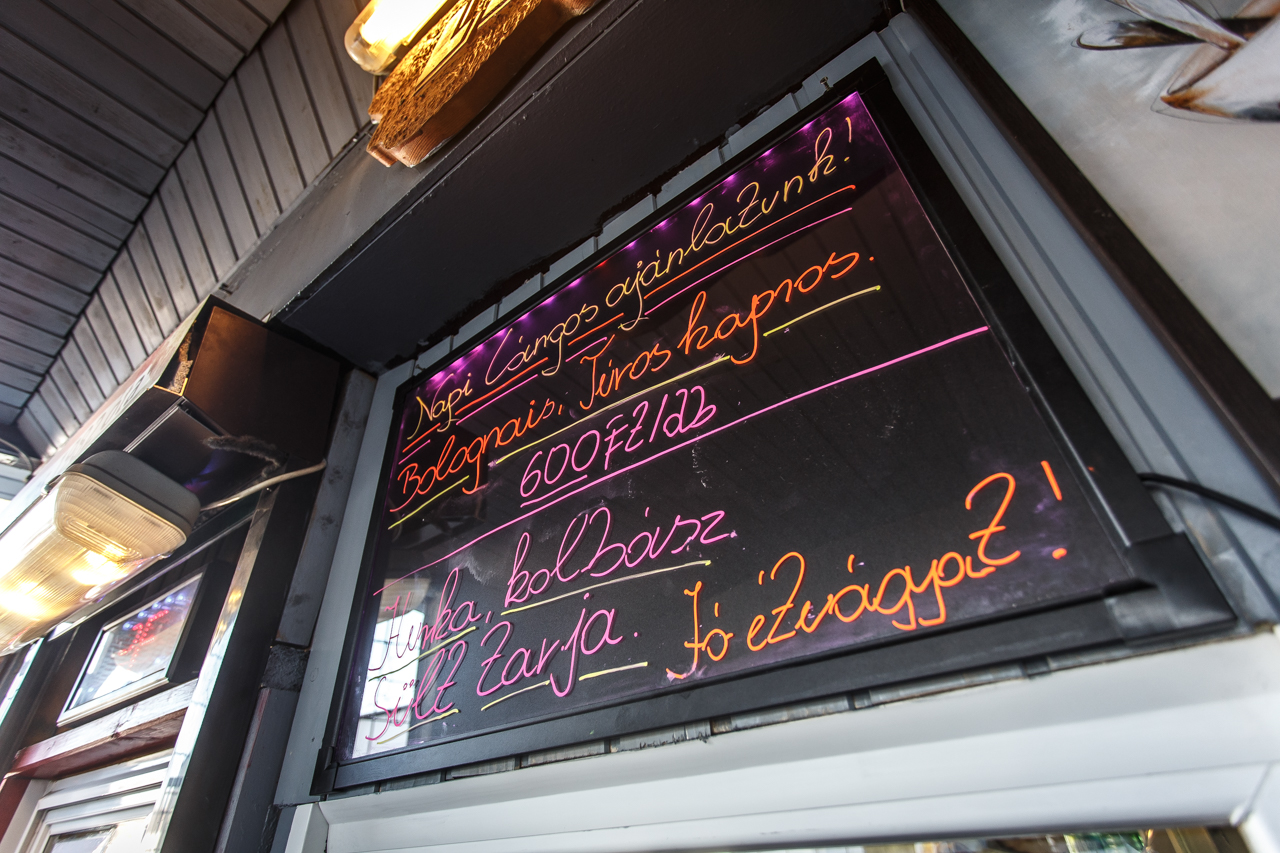 Napi Lángos ajánlatunk!
Bolognais, Túros kapros.
600 Ft/db
Hurka, kolbász.
Sült tarja. Jó étvágyat!